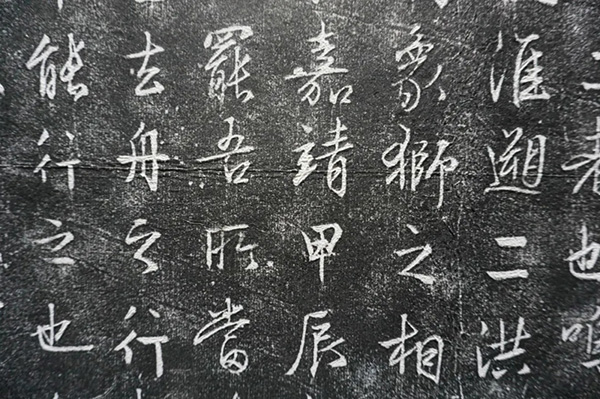 者也
淮遡二洪
象獅之相
嘉靖甲辰
罷吾所當
去舟之行
能行之也